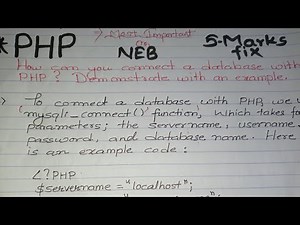 * PHP
Most Important
for
NEB
5-Marks
fix
How can you connect a database with
PHP? Demonstrate with an example.
To connect a database with PHP, we
'mysqli_connect()' function, which takes
parameters; the servername, username
password, and database name. Here
is an example code:
<?PHP
$servername = "localhost";